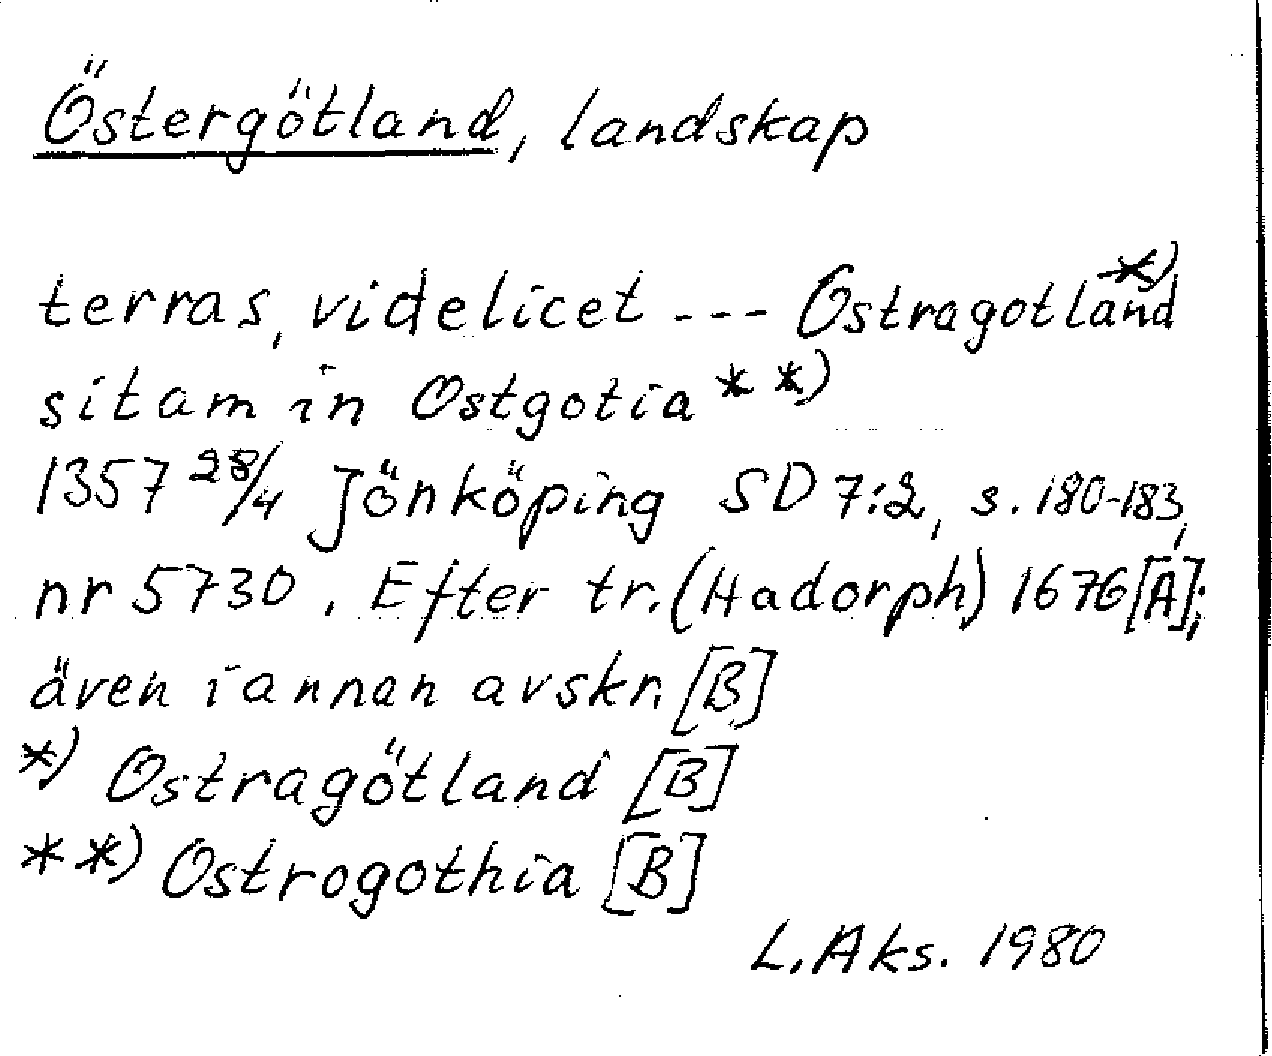 Östergötland, landskap
terras, videlicet --- Ostragotland *)
sitam in Ostgotia **)
1357 28/4 Jönköping SD 7:2, s. 180-183,
nr 5730. Efter tr. (Hadorph) 1676 [A];
även i annan avskr. [B]
*) Ostragötland [B]
**) Ostrogothia [B]
L. Aks. 1980